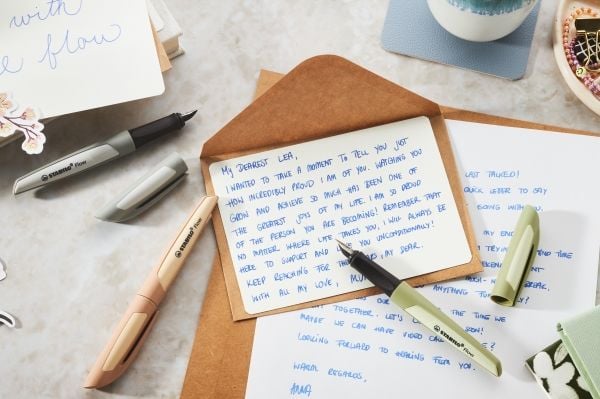 with
flow
MY DEAREST LEA,
I WANTED TO TAKE A MOMENT TO TELL YOU JUST
HOW INCREDIBLY PROUD I AM OF YOU. WATCHING YOU
GROW AND ACHIEVE SO MUCH HAS BEEN ONE OF
THE GREATEST JOYS OF MY LIFE. I AM SO PROUD
OF THE PERSON YOU ARE BECOMING! REMEMBER THAT
NO MATTER WHERE LIFE TAKES YOU, I WILL ALWAYS BE
HERE TO SUPPORT AND YOU UNCONDITIONALLY!
KEEP REACHING FOR MY DEAR.
WITH ALL MY LOVE,
LAST TALKED!
QUICK LETTER TO SAY
GOING WITH
MY
TIME
BREAK.
ANYTHING FUN
TOGETHER. THE TIME WE
MAYBE WE CAN HAVE VIDEO CALL
LOOKING FORWARD TO HEARING FROM YOU.
WARM REGARDS,
ANNA
STABILO Flow
STABILO Flow
STABILO Flow